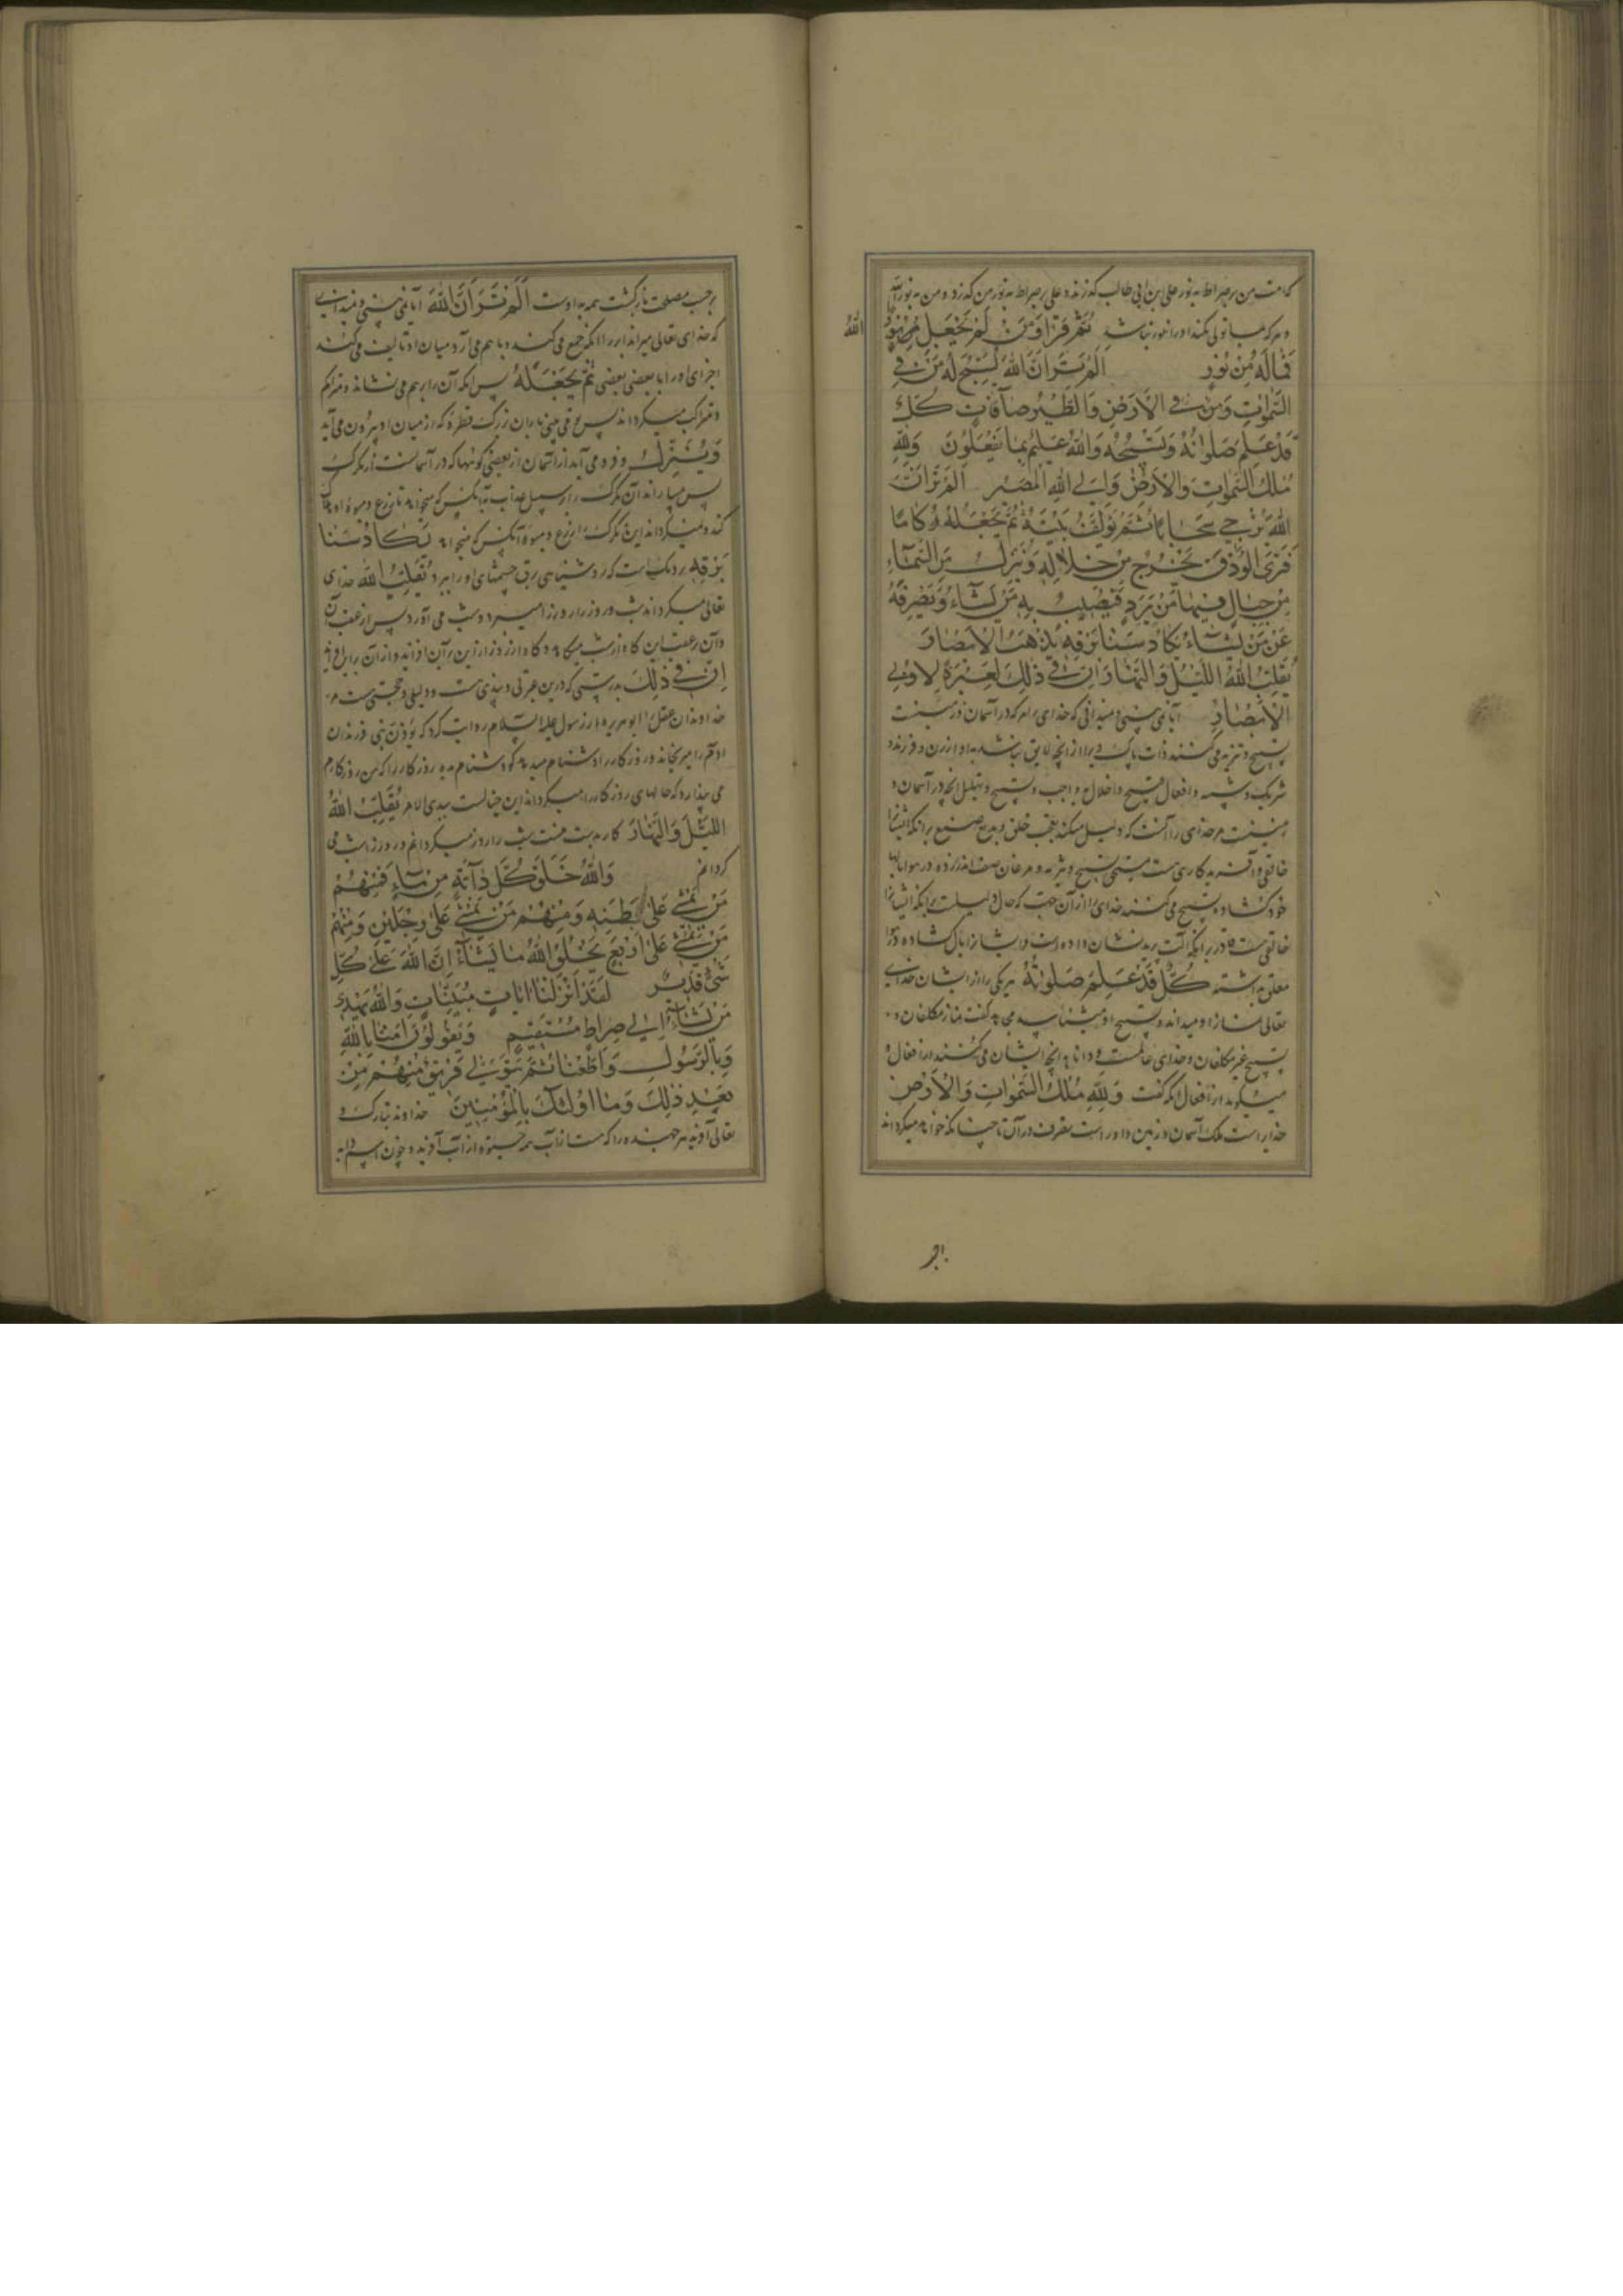 امت من بر صراط به نور علی ابن ابی طالب گذرند و علی بر صراط به نور من گذرد و من به نور الله
و هر که تولی نکند او را نور نباشد ثم قرا ومن لم یجعل
الله
فماله من نور الم تر ان الله یسبح له من فی
السموات ومن فی الارض والطیر صافات کل
قد علم صلوته وتسبیحه والله علیم بما یفعلون ولله
ملک السموات والارض والی الله المصیر الم تر ان
الله یزجی سحابا ثم یؤلف بینه ثم یجعله رکاما
فتری الودق یخرج من خلاله وینزل من السماء
من جبال فیها من برد فیصیب به من یشاء ویصرفه
عن من یشاء یکاد سنا برقه یذهب الابصار
یقلب الله اللیل والنهار ان فی ذلک لعبرة لاولی
الابصار آیا نمی بینی و نمیدانی که خدای را هر که در آسمان و زمینست
تسبیح و تنزیه می کنند ذات پاک ویرا از آنچه لایق نباشد به او از زن و فرزند و
شریک و شبه و افعال قبیح و اخلال واجب و تسبیح و تهلیل آنچه در آسمان و
زمینست مر خدای را آنست که دلیل میکند بعجب خلق و بدیع صنع برانکه ایشانرا
خالقی و آفریدگاری هست مستحق تسبیح و تنزیه و مرغان صف اندر زده در هوا بالها
خود گشاده تسبیح می کنند خدای را از آن جهت که حال دلیلست برانکه ایشانرا
خالقی هست قادر برانکه نشان داده است و ایشانرا بال گشاده در هوا
معلق داشته کل قد علم صلوته هر یکی را از ایشان خدای
تعالی نماز او میداند و تسبیح او میشناسد مجاهد گفت نماز مکلفان و
تسبیح غیر مکلفان و خدای عالمست و دانا به آنچه ایشان می کنند از افعال و
میگویند از افعال آنکه گفت ولله ملک السموات والارض
خدایراست ملک آسمان و زمین و او راست تصرف در آن تا چنانکه خواهد میگرداند
بر حسب مصلحت بازگشت همه به اوست الم تر ان الله آیا نمی بینی و نمیدانی
که خدای تعالی میراند ابر را آنگه جمع می کند و با هم می آرد میان او تالیف می کند
اجزای او را با بعضی بعضی ثم یجعله پس آنکه آن را بر هم می نشاند و متراکم
و متراکب میگرداند پس تو می بینی باران بزرگ قطره که از میان او بیرون می آید
وینزل و فرود می آید از آسمان از بعضی کوهها که در آسمانست از تگرگ
پس میباراند آن تگرگ را بر سبیل عذاب به آنکس که میخواهد تا زرع و میوه او هلاک
کند و میگرداند این تگرگ را از زرع و میوه آنکس که میخواهد یکاد سنا
برقه نزدیک است که روشنایی برق چشمهای او را ببرد یقلب الله خدای
تعالی میگرداند شب و روز را روز را میبرد و شب می آورد پس از عقب آن
وآن بر عقب این گاه از شب میکاهد و گاه از روز از این بر آن افزاید و از آن بر این افزاید
ان فی ذلک بدرستی که درین عبرتی و پندی هست و دلیلی و حجتی هست مر
خداوندان عقل را ابو هریره از رسول علیه السلام روایت کرد که یؤذینی فرزندان
آدم مرا میرنجاند و روزگار را دشنام میدهد گو دشنام مده روزگار را که من روزگارم
می پندارد که حالهای روزگار را میگرداند این چنانست بیدی الامر یقلب الله
اللیل والنهار کار بدست منست شب را روز میگردانم و روز را شب می
گردانم والله خلق کل دابة من ماء فمنهم
من یمشی علی بطنه ومنهم من یمشی علی رجلین ومنهم
من یمشی علی اربع یخلق الله ما یشاء ان الله علی کل
شئ قدیر لقد انزلنا ایات مبینات والله یهدی
من یشاء الی صراط مستقیم ویقولون امنا بالله
وبالرسول واطعنا ثم یتولی فریق منهم من
بعد ذلک وما اولئک بالمؤمنین خداوند تبارک و
تعالی آفرید هر جنبنده را که هست از آب همه جنبنده از آب آفرید و چون اسم دابه
بر